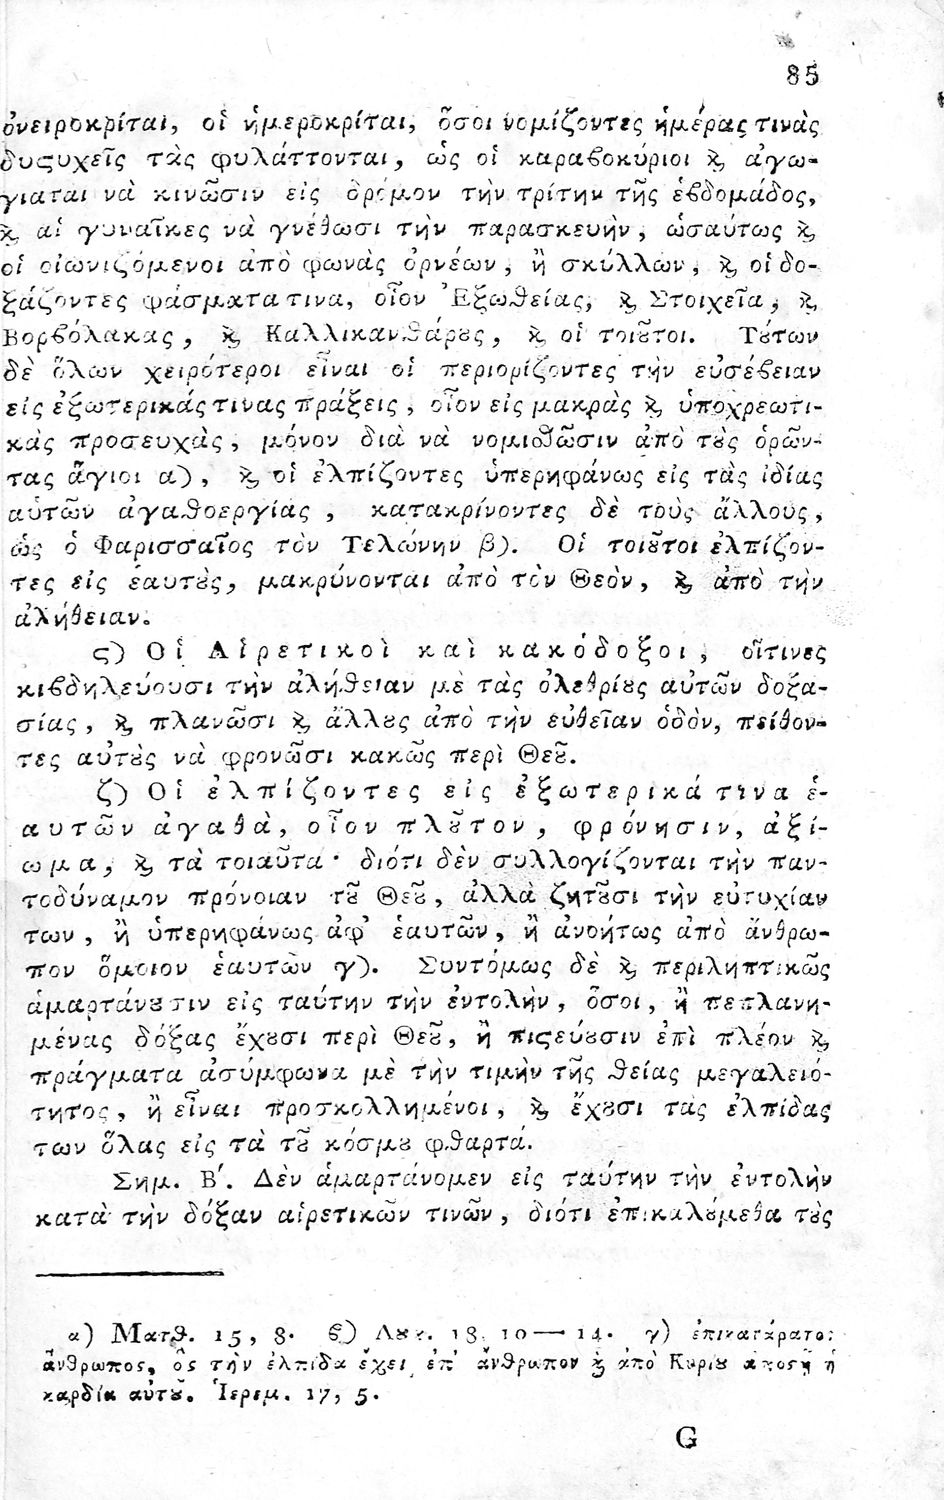 85
ὀνειροκρίται, οἱ ἡμεροκρίται, ὅσοι νομίζοντες ἡμέρας τινὰς
δυςυχεῖς τὰς φυλάττονται, ὡς οἱ καραβοκύριοι ϗ ἀγω-
γιαται νὰ κινῶσιν εἰς δρόμον τὴν τρίτην τῆς ἑβδομάδος,
ϗ αἱ γυναῖκες νὰ γνέθωσι τὴν παρασκευὴν, ὡσαύτως ϗ
οἱ οἰωνιζόμενοι ἀπὸ φωνὰς ὀρνέων, ἢ σκύλλων, ϗ οἱ δο-
ξάζοντες φάσματα τινα, οἷον Ἐξωθείας, ϗ Στοιχεῖα, ϗ
Βορβόλακας, ϗ Καλλικανθάρȣς, ϗ οἱ τοιȣ͂τοι. Τȣ́των
δὲ ὅλων χειρότεροι εἶναι οἱ περιορίζοντες τὴν εὐσέβειαν
εἰς ἐξωτερικάς τινας πράξεις, οἷον εἰς μακρὰς ϗ ὑποχρεωτι-
κὰς προσευχὰς, μόνον διὰ νὰ νομιθῶσιν ἀπὸ τȣ̀ς ὁρῶν-
τας ἅγιοι α), ϗ οἱ ἐλπίζοντες ὑπερηφάνως εἰς τὰς ἰδίας
αὑτῶν ἀγαθοεργίας, κατακρίνοντες δὲ τοὺς ἄλλους,
ὡς ὁ Φαρισσαῖος τὸν Τελώνην β). Οἱ τοιȣ͂τοι ἐλπίζον-
τες εἰς ἑαυτȣ̀ς, μακρύνονται ἀπὸ τὸν Θεὸν, ϗ ἀπὸ τὴν
ἀλήθειαν.
ς) Οἱ Αἱρετικοὶ καὶ κακόδοξοι, οἵτινες
κιβδηλεύουσι τὴν ἀλήθειαν μὲ τὰς ὀλεθρίȣς αὐτῶν δοξα-
σίας, ϗ πλανῶσι ϗ ἄλλȣς ἀπὸ τὴν εὐθεῖαν ὁδὸν, πείθον-
τες αὐτȣ̀ς νὰ φρονῶσι κακῶς περὶ Θεȣ͂.
ζ) Οἱ ἐλπίζοντες εἰς ἐξωτερικά τινα ἑ-
αυτῶν ἀγαθὰ, οἷον πλȣ͂τον, φρόνησιν, ἀξί-
ωμα, ϗ τὰ τοιαῦτα· διότι δὲν συλλογίζονται τὴν παν-
τοδύναμον πρόνοιαν τȣ͂ Θεȣ͂, ἀλλὰ ζητȣ͂σι τὴν εὐτυχίαν
των, ἢ ὑπερηφάνως ἀφ’ ἑαυτῶν, ἢ ἀνοήτως ἀπὸ ἄνθρω-
πον ὅμοιον ἑαυτῶν γ). Συντόμως δὲ ϗ περιληπτικῶς
ἁμαρτάνȣσιν εἰς ταύτην τὴν ἐντολὴν, ὅσοι, ἢ πεπλανη-
μένας δόξας ἔχȣσι περὶ Θεȣ͂, ἢ πιςεύȣσιν ἐπὶ πλέον ϗ
πράγματα ἀσύμφωνα μὲ τὴν τιμὴν τῆς θείας μεγαλειό-
τητος, ἢ εἶναι προσκολλημένοι, ϗ ἔχȣσι τας ἐλπίδας
των ὅλας εἰς τὰ τȣ͂ κόσμȣ φθαρτά.
Σημ. Β΄. Δὲν ἁμαρτάνομεν εἰς ταύτην τὴν ἐντολὴν
κατὰ τὴν δόξαν αἱρετικῶν τινῶν, διότι ἐπικαλȣ́μεθα τȣ̀ς
α) Ματθ. 15, 8. β) Λȣκ. 18, 10—14. γ) ἐπικατάρατος
ἄνθρωπος, ὃς τὴν ἐλπίδα ἔχει ἐπ’ ἄνθρωπον ϗ ἀπὸ Κυρίȣ ἀποςῇ ἡ
καρδία αὐτȣ͂. Ἱερεμ. 17, 5.
G